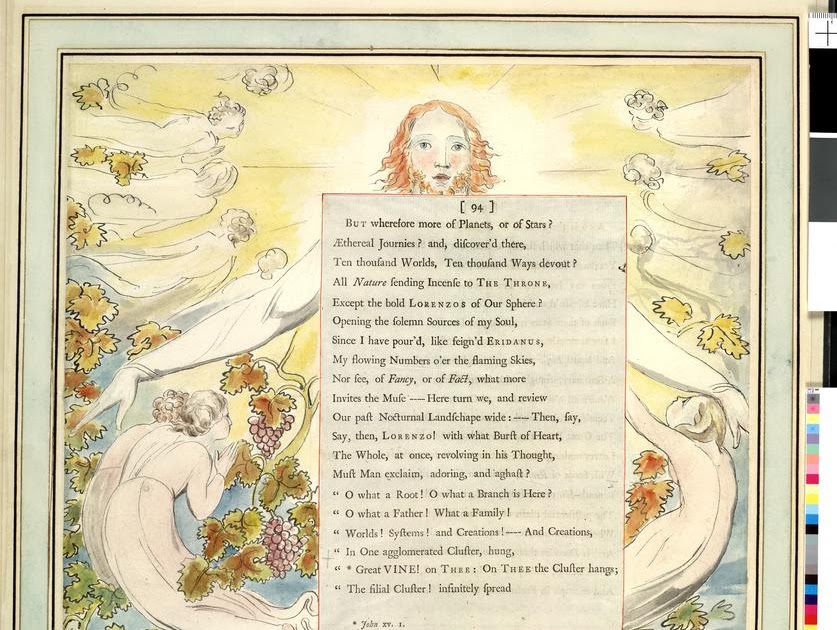 [ 94 ]
BUT wherefore more of Planets, or of Stars?
Æthereal Journies? and, diſcover'd there,
Ten thouſand Worlds, Ten thouſand Ways devout?
All Nature ſending Incenſe to THE THRONE,
Except the bold LORENZOS of Our Sphere?
Opening the ſolemn Sources of my Soul,
Since I have pour'd, like feign'd ERIDANUS,
My flowing Numbers o'er the flaming Skies,
Nor ſee, of Fancy, or of Fact, what more
Invites the Muſe ---- Here turn we, and review
Our paſt Nocturnal Landſchape wide: ---- Then, ſay,
Say, then, LORENZO! with what Burſt of Heart,
The Whole, at once, revolving in his Thought,
Muſt Man exclaim, adoring, and aghaſt?
“ O what a Root! O what a Branch is Here?
“ O what a Father! What a Family!
“ Worlds! Syſtems! and Creations! ---- And Creations,
“ In One agglomerated Cluſter, hung,
“ * Great VINE! on THEE: On THEE the Cluſter hangs;
“ The filial Cluſter! infinitely ſpread
* John xv. 1.